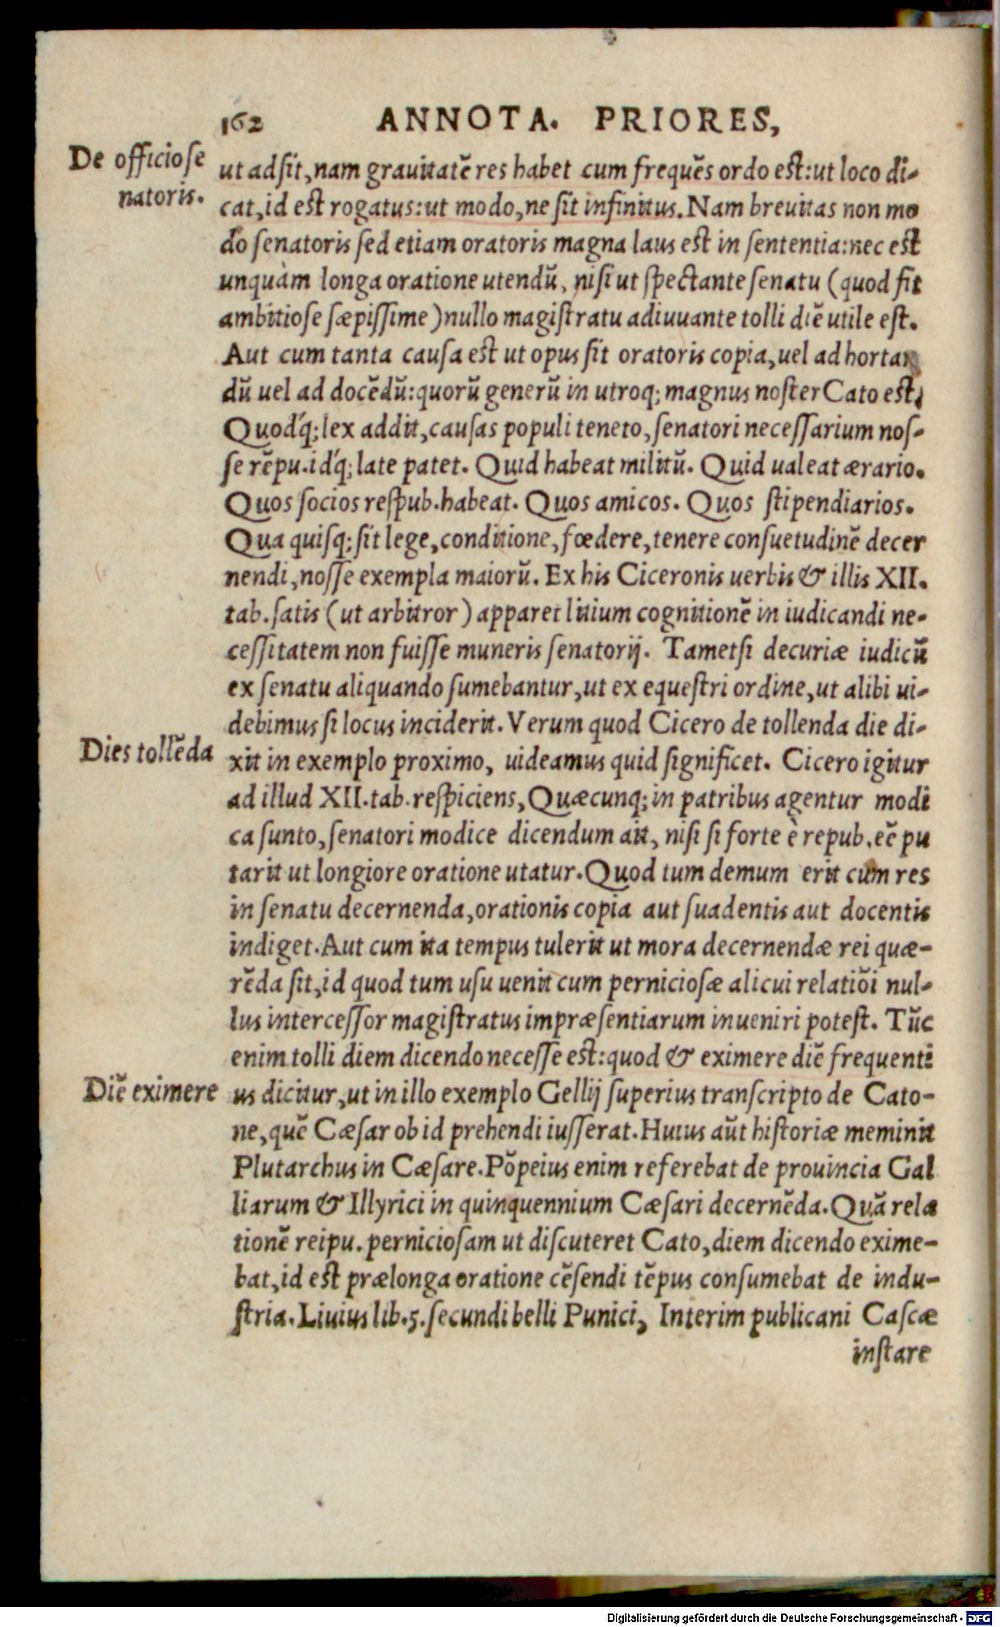 162 ANNOTA. PRIORES,
De officio se
natoris.
ut adsit, nam grauitatē res habet cum frequēs ordo est: ut loco di-
cat, id est rogatus: ut modo, ne sit infinitus. Nam breuitas non mo
do senatoris sed etiam oratoris magna laus est in sententia: nec est
unquàm longa oratione utendū, nisi ut spectante senatu (quod fit
ambitiose sæpissime) nullo magistratu adiuuante tolli diē utile est.
Aut cum tanta causa est ut opus sit oratoris copia, uel ad hortan
dū uel ad docēdū: quorū generū in utroq; magnus noster Cato est.
Quodq́; lex addit, causas populi teneto, senatori necessarium nos-
se rēpu. idq́; late patet. Quid habeat militū. Quid ualeat ærario.
Quos socios respub. habeat. Quos amicos. Quos stipendiarios.
Qua quisq; sit lege, conditione, fœdere, tenere consuetudinē decer
nendi, nosse exempla maiorū. Ex his Ciceronis uerbis & illis XII.
tab. satis (ut arbitror) apparet litium cognitionē in iudicandi ne-
cessitatem non fuisse muneris senatorij. Tametsi decuriæ iudicū
ex senatu aliquando sumebantur, ut ex equestri ordine, ut alibi ui-
debimus si locus inciderit. Verum quod Cicero de tollenda die di-
Dies tollēda
xit in exemplo proximo, uideamus quid significet. Cicero igitur
ad illud XII. tab. respiciens, Quæcunq; in patribus agentur modi
ca sunto, senatori modice dicendum ait, nisi si forte è repub. eē pu
tarit ut longiore oratione utatur. Quod tum demum erit cùm res
in senatu decernenda, orationis copia aut suadentis aut docentis
indiget. Aut cum ita tempus tulerit ut mora decernendæ rei quæ-
rēda sit, id quod tum usu uenit cum perniciosæ alicui relatiōi nul-
lus intercessor magistratus impræsentiarum inueniri potest. Tūc
enim tolli diem dicendo necesse est: quod & eximere diē frequenti
Diē eximere
us dicitur, ut in illo exemplo Gellij superius transcripto de Cato-
ne, quē Cæsar ob id prehendi iusserat. Huius aūt historiæ meminit
Plutarchus in Cæsare. Pōpeius enim referebat de prouincia Gal
liarum & Illyrici in quinquennium Cæsari decernēda. Quā rela
tionē reipu. perniciosam ut discuteret Cato, diem dicendo exime-
bat, id est prælonga oratione cēsendi tēpus consumebat de indu-
stria. Liuius lib. 5. secundi belli Punici, Interim publicani Cascæ
instare
Digitalisierung gefördert durch die Deutsche Forschungsgemeinschaft - DFG